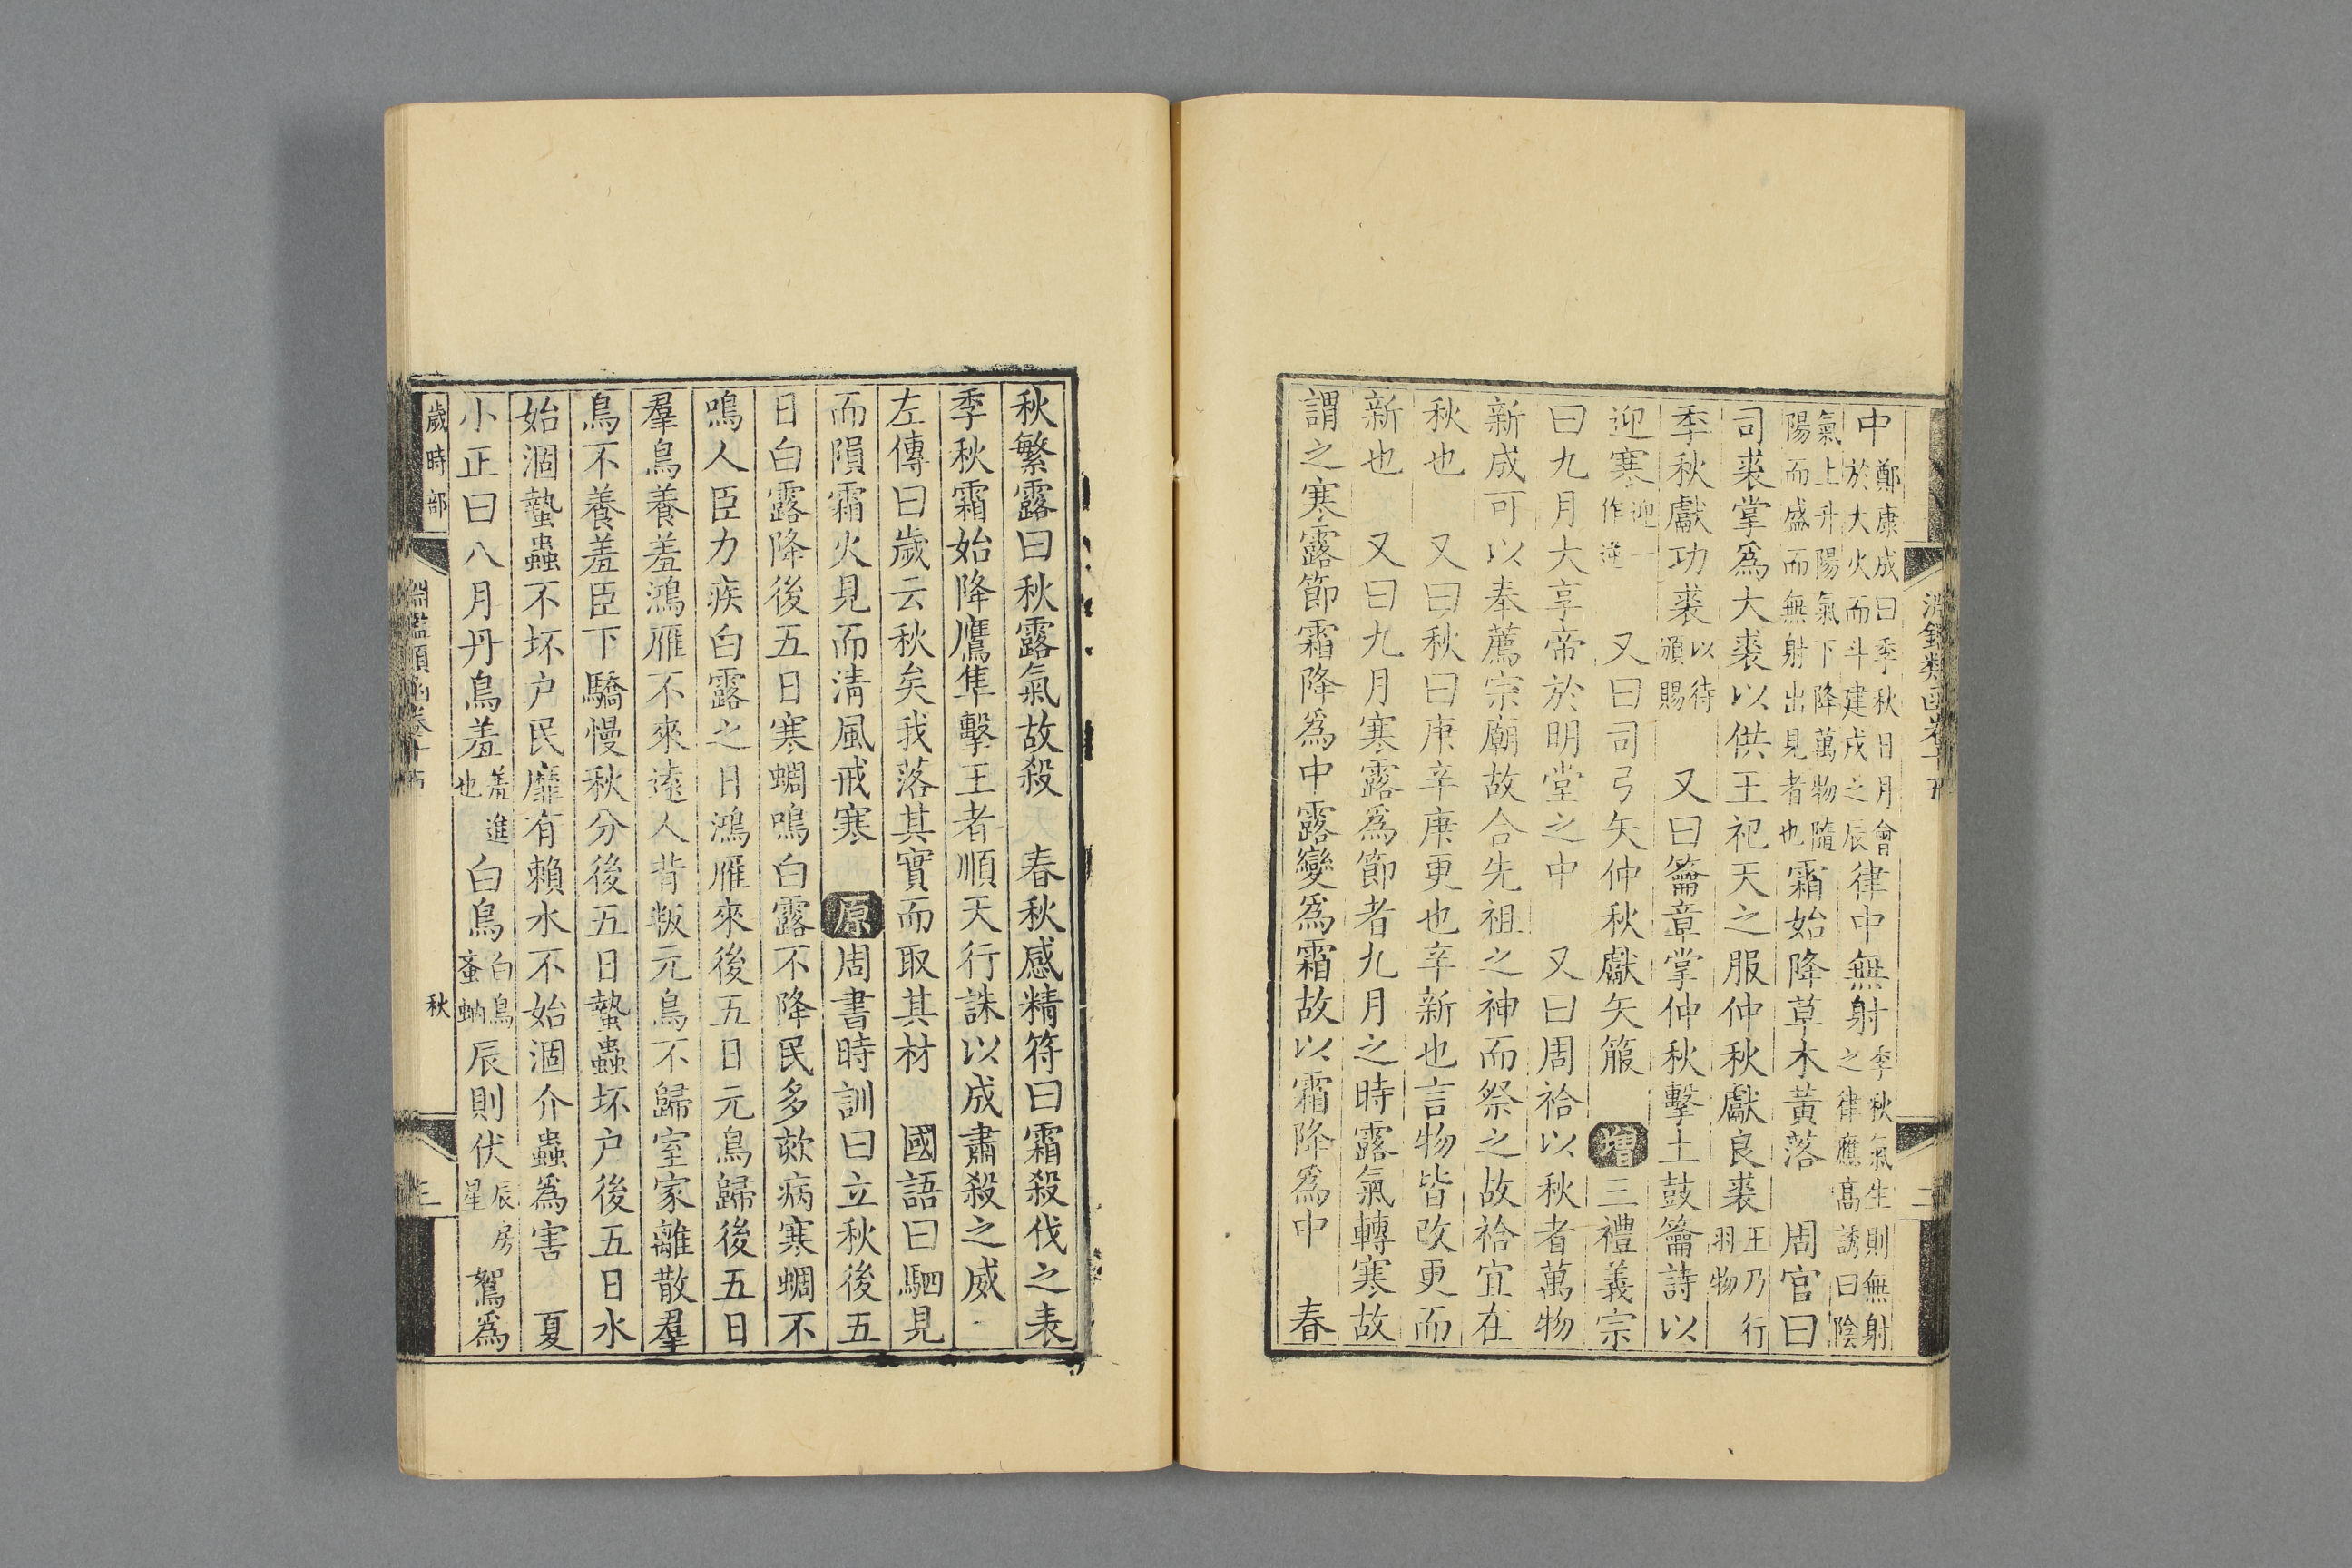 中鄭康成曰季秋日月會於大火而斗建戌之辰律中無射季秋氣生則無射之律應高誘曰陰
氣上升陽氣下降萬物隨陽而盛而無射出見者也霜始降草木黃落　周官曰
司裘掌爲大裘以供王祀天之服仲秋獻良裘王乃行羽物
季秋獻功裘以待頒賜　又曰籥章掌仲秋擊土鼓籥詩以
迎寒迎一作逆　又曰司弓矢仲秋獻矢箙　增三禮義宗
曰九月大享帝於明堂之中　又曰周祫以秋者萬物
新成可以奉薦宗廟故合先祖之神而祭之故祫宜在
秋也　又曰秋曰庚辛庚更也辛新也言物皆改更而
新也　又曰九月寒露爲節者九月之時露氣轉寒故
謂之寒露節霜降爲中露變爲霜故以霜降爲中　春
秋繁露曰秋露氣故殺　春秋感精符曰霜殺伐之表
季秋霜始降鷹隼擊王者順天行誅以成肅殺之威
左傳曰歲云秋矣我落其實而取其材　國語曰駟見
而隕霜火見而淸風戒寒　原周書時訓曰立秋後五
日白露降後五日寒蜩鳴白露不降民多欬病寒蜩不
鳴人臣力疾白露之日鴻雁來後五日元鳥歸後五日
羣鳥養羞鴻雁不來遠人背叛元鳥不歸室家離散羣
鳥不養羞臣下驕慢秋分後五日蟄蟲坏户後五日水
始涸蟄蟲不坏户民靡有賴水不始涸介蟲爲害　夏
小正曰八月丹鳥羞羞進也白鳥白鳥蚉蚋辰則伏辰房星　鴽爲
歲時部
淵鑑類函卷十五
秋